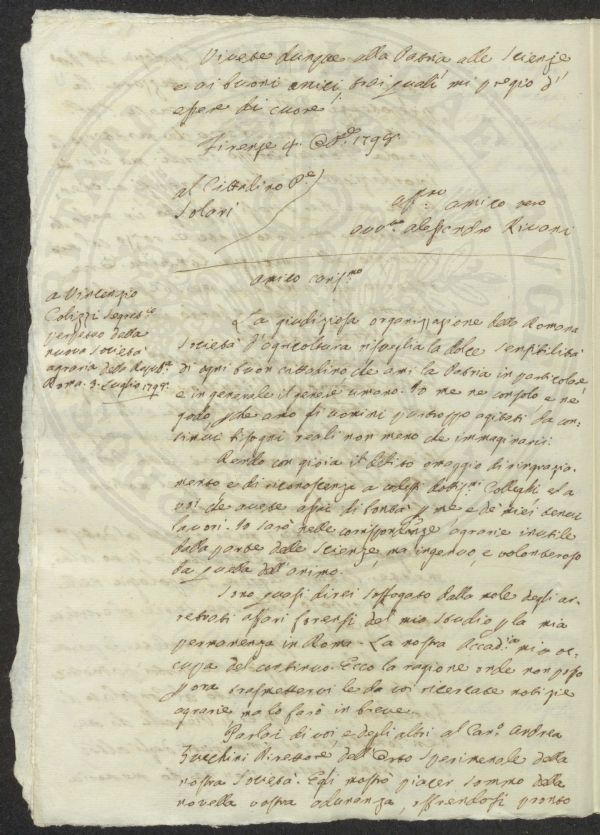 Vivete dunque alla Patria alle Scienze
e ai buoni amici, trai quali mi pregio d'
essere di cuore
Firenze 4. 1798.
al Cittadino Pre
Solari
affmo amico vero
avvto alessandro Rivani
amico carismo
a Vincenzio
Colizzi Segreto
perpetuo della
nuova Società
agraria della Repubca
Roma. 3. Luglio 1798.
La giudiziosa organizzazione della Romana
Società d'agricoltura risveglia la dolce sensibilità
di ogni buon cittadino che ami la Patria in particolare,
e in generale il genere umano. Io me ne consolo e ne
godo, che amo gli uomini purtroppo agitati da con-
tinui bisogni reali non meno che immaginarii.
Rendo con gioia il debito omaggio di ringrazia-
mento e di riconoscenza a codesti dottismi Colleghi ed a
voi che avete assai di bontà p me e de' miei tenui
lavori. Io sarò nelle corrispondenze agrarie inutile
dalla parte delle Scienze, ma ingenuo, e volonteroso
da quella dell'animo.
Sono quasi direi soffogato dalla mole degli ar-
retrati affari forensi del mio Studio p la mia
permanenza in Roma. La nostra Accada mi oc-
cupa del continuo. Ecco la ragione onde non posso
p ora trasmettervi le da voi ricercate notizie
agrarie, ma lo farò in breve.
Parlai di voi, e degli altri al Cano. Andrea
Zucchini Direttore dell'Orto sperimentale della
nostra Società. Egli mostrò piacer sommo della
novella vostra adunanza, offrendosi pronto